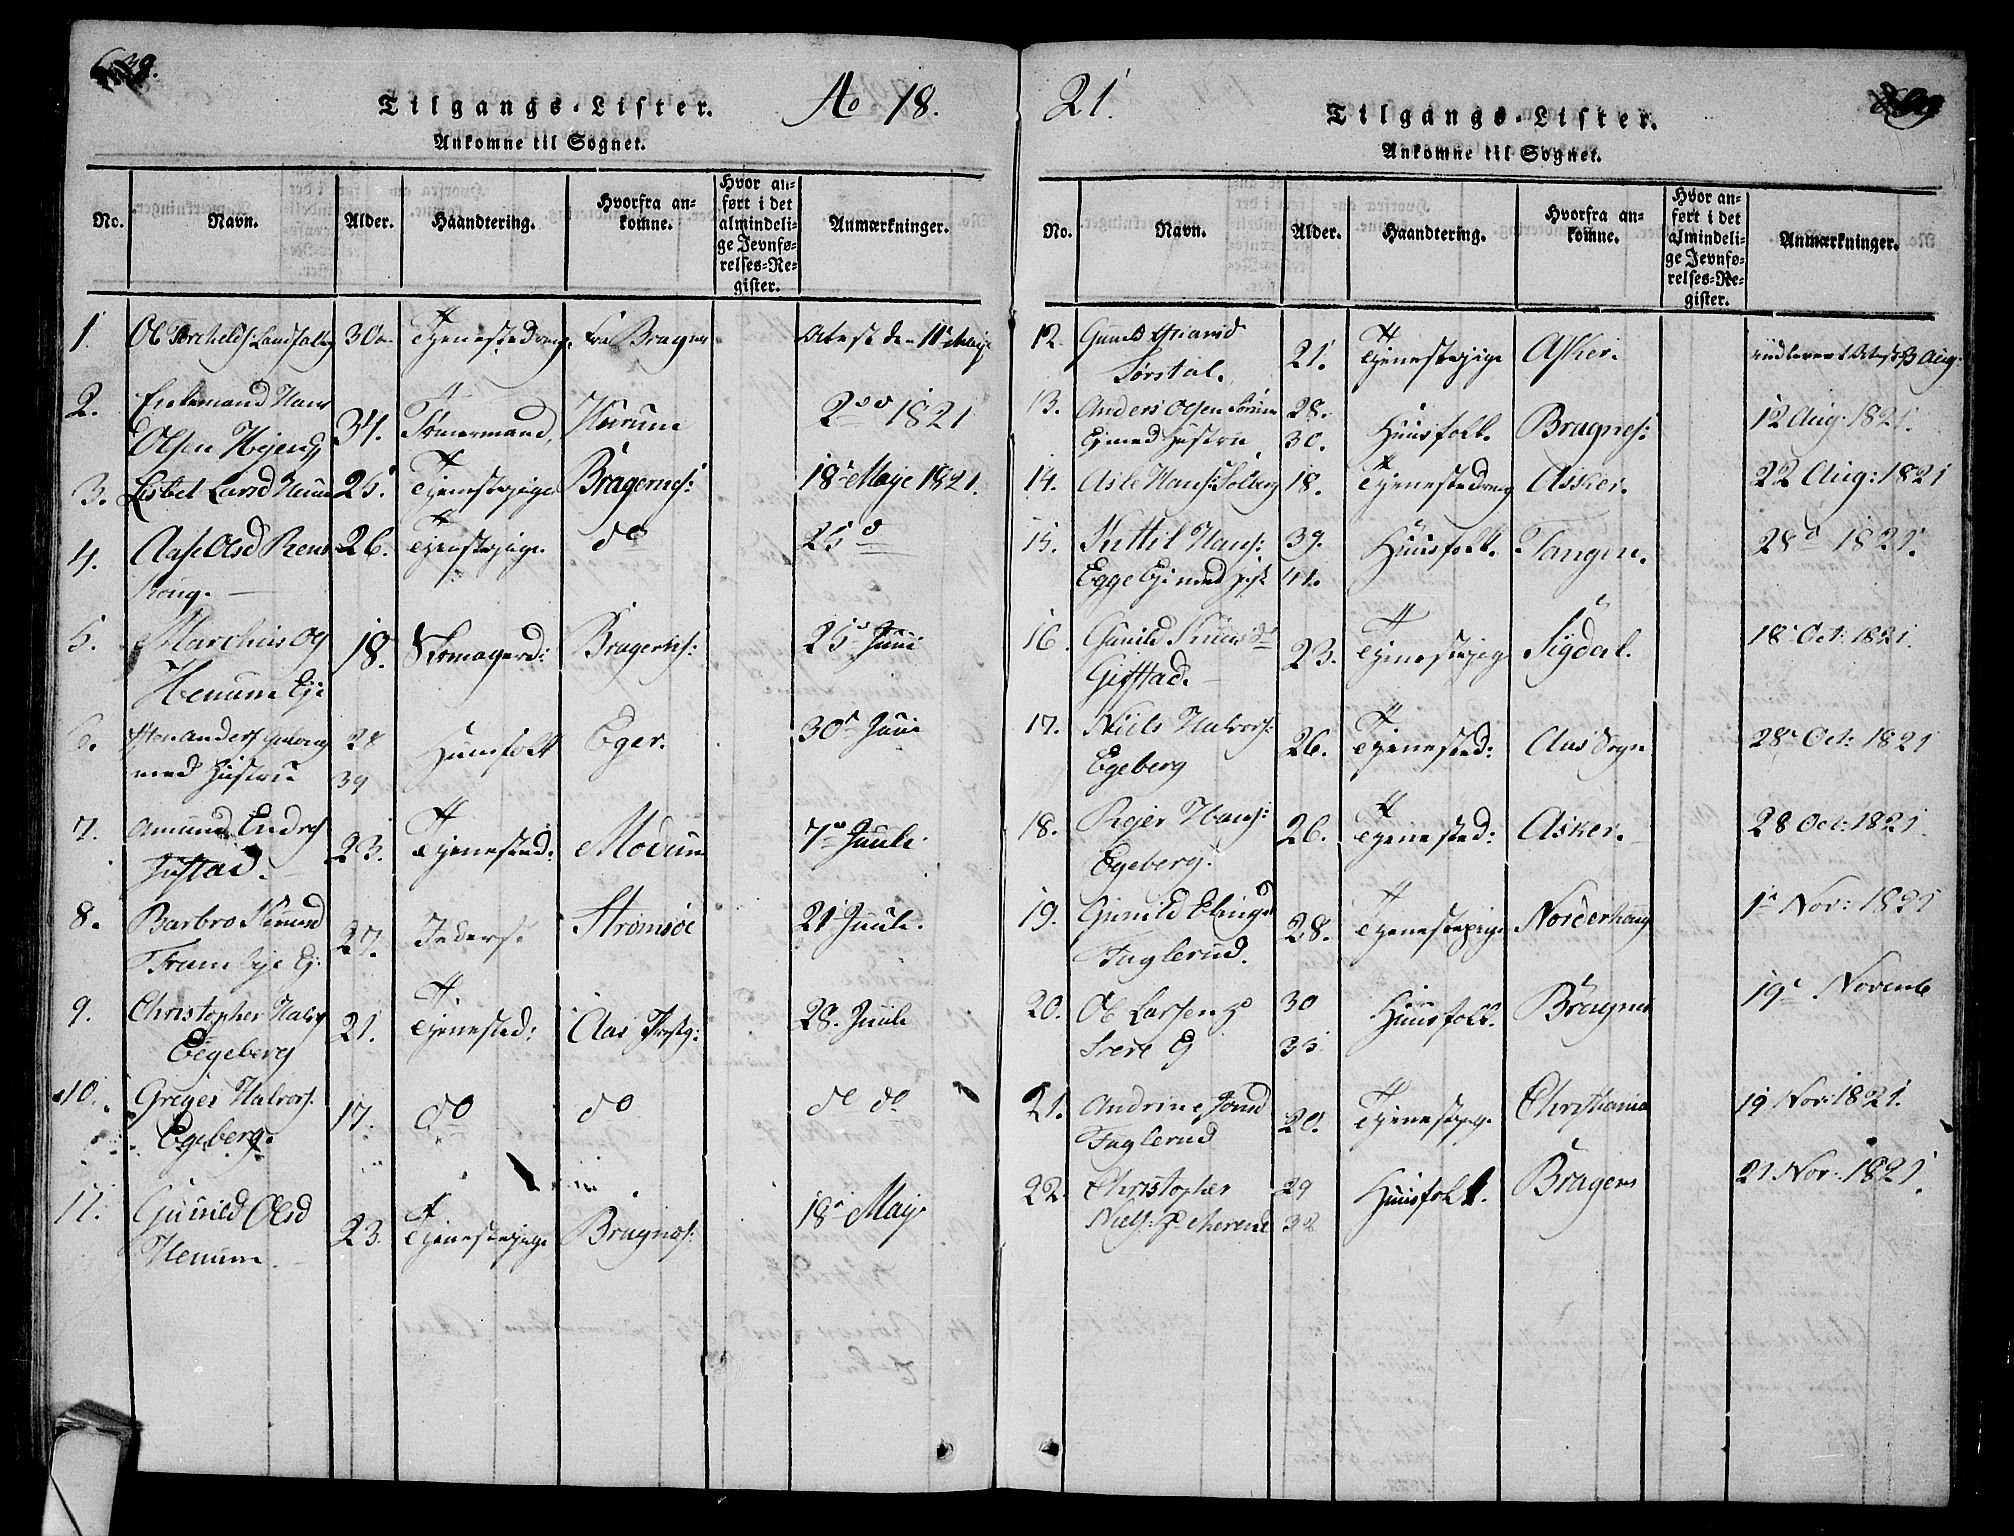 Tilgangs-Lister. Ao 18.
Ankomne til Sognet.
No. Navn. Alder. Haandtering. Hvorfra ankomne. Hvor anført i det almindelige Jevnførelses-Register. Anmærkninger.
1. Ole Torchelds: Landfalløy 30 Tjenestedreng. Fra Bragnes Attest den 11 Maje
2. Enkemand Hans
Olsen Hejen 34. Tømermand, Hurum 2 do 1821
3. Lisbet Larsd Henum 25. Tjenestepige Bragernes: 18 Maye 1821.
4. Aase Olsd Rens 26. Tjenestepige. do 25 d
Kong.
5. Marchus Og
Henum Eje 18. Skomagerd: Bragernes: 25 Juni
6. Sten Anders
med Hustru 28 39 Huusfolk Eger. 30 Juni
7. Amund Endres
Justad. 23. Tjenested: Modum 7 Juuli.
8. Barbro Knud
Eje 27. Inderst. Strømsøe 21 Juuli.
9. Christopher Halvo
Eegeberg 21. Tjenested: Aas Præstg: 28. Juuli
10. Greger Halvors.
Egeberg. 17. do do do do
11. Gunild Olsd
Henum. 23. Tjenestepige Bragnæs: 18 May
21.
Tilgangs-Lister.
Ankomne til Sognet.
No. Navn. Alder. Haandtering. Hvorfra ankomne. Hvor anført i det almindelige Jevnførelses-Register. Anmærkninger.
12. Gunild
Sørstal. 21. Tjenestepige Asker. indleveret Attest 3 Aug.
13. Anders Olsen
Eje med Hustru 28. 30. Huusfolk. Bragnes: 12 Aug. 1821.
14. Asle Hans: Solberg 18. Tjenestedreng Assker. 22 Aug: 1821
15. Kittil Hans:
Egge Eje med 39. 41. Huusfolk. Tangen. 28 1821.
16. Gunild Knuds
Gifstad. 23. Tjenestepige Sigdal. 18 Oct: 1821.
17. Niels Halvors:
Egeberg 26. Tjenested: Aas Sogn 28 Oct: 1821
18. Rejer Hans:
Egeberg. 26. Tjenested: Asker. 28 Oct: 1821.
19. Gunild Elling
Fuglerud. 28. Tjenestepige Norderhaug 1 Nov: 1821
20. Ole Larsen
30 35 Huusfolk. Bragnes 19 Novemb
21. Andrine Jonsd
Fuglerud 20. Tjenestepg. Christiania 19 Nov: 1821.
22. Christopher
Niels: 29 32 Huusfolk. Bragens 21 Nov: 1821.